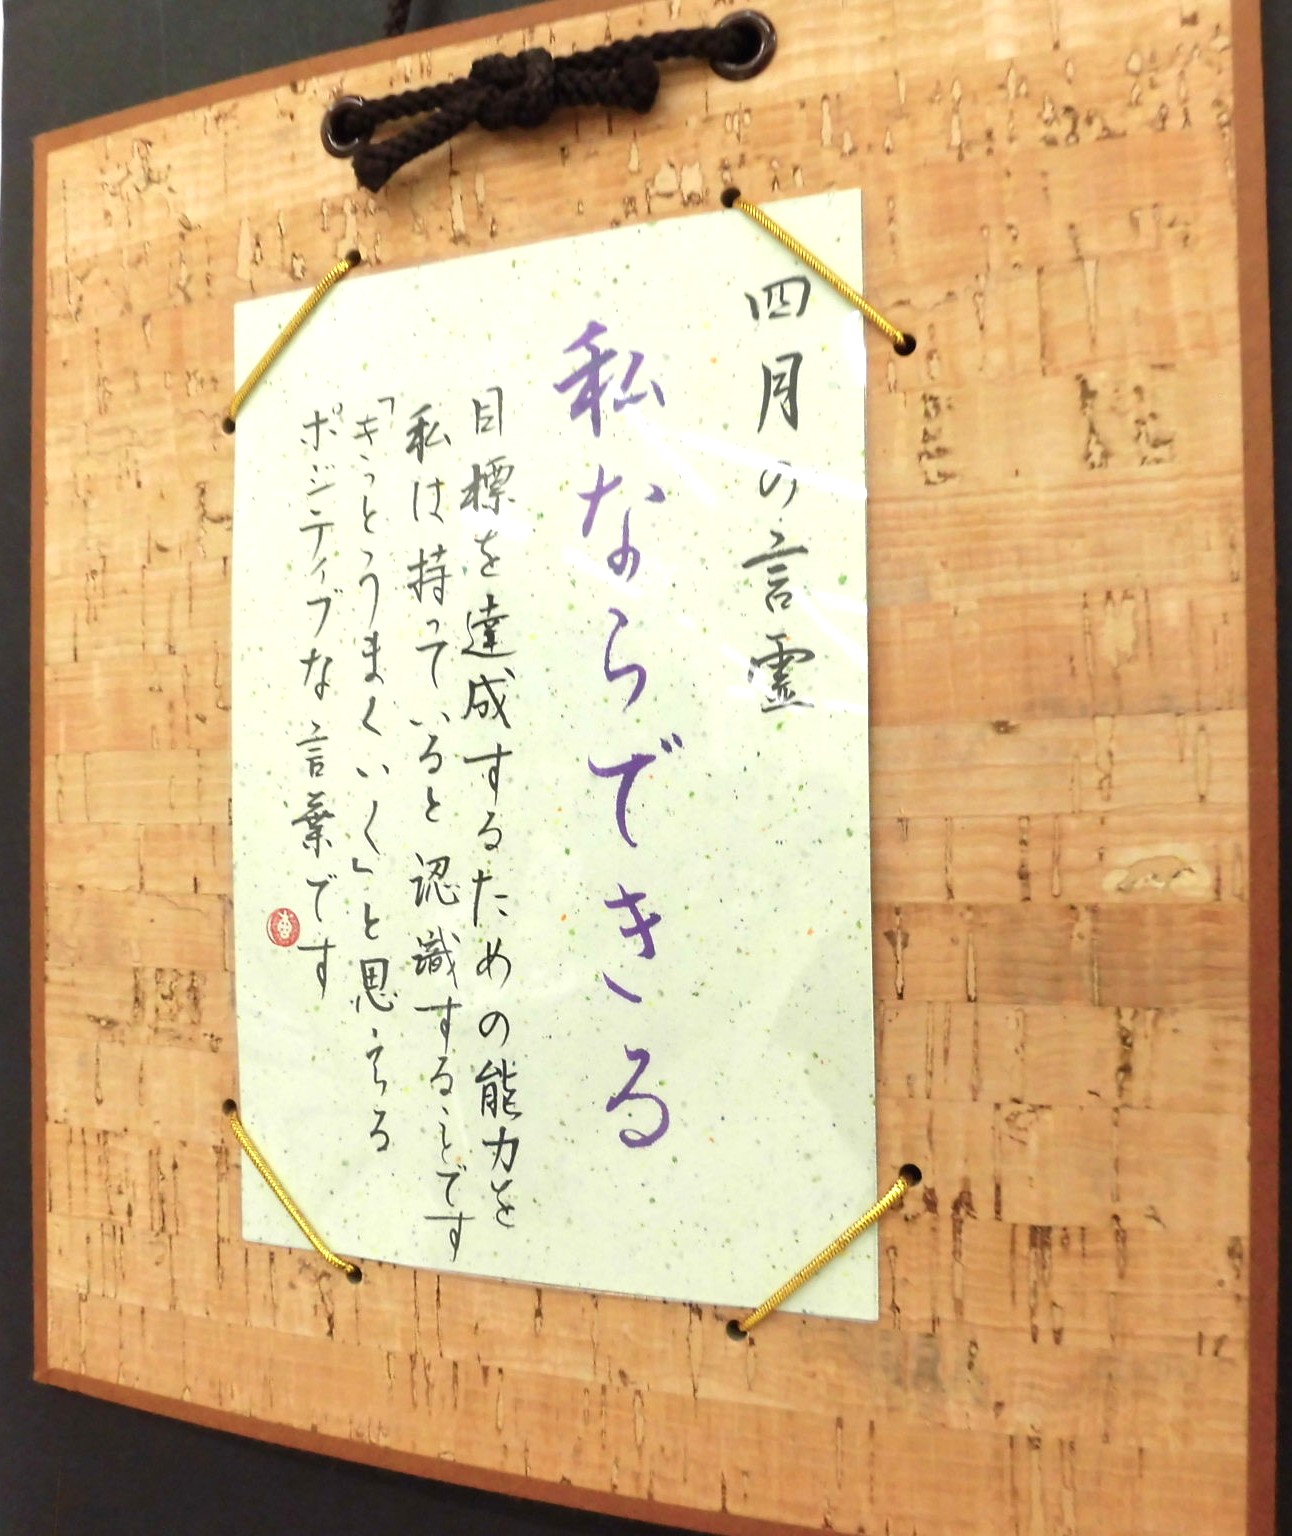 四月の言霊
私ならできる
目標を達成するための能力を
私は持っていると認識することです
「きっとうまくいく」と思える
ポジティブな言葉です